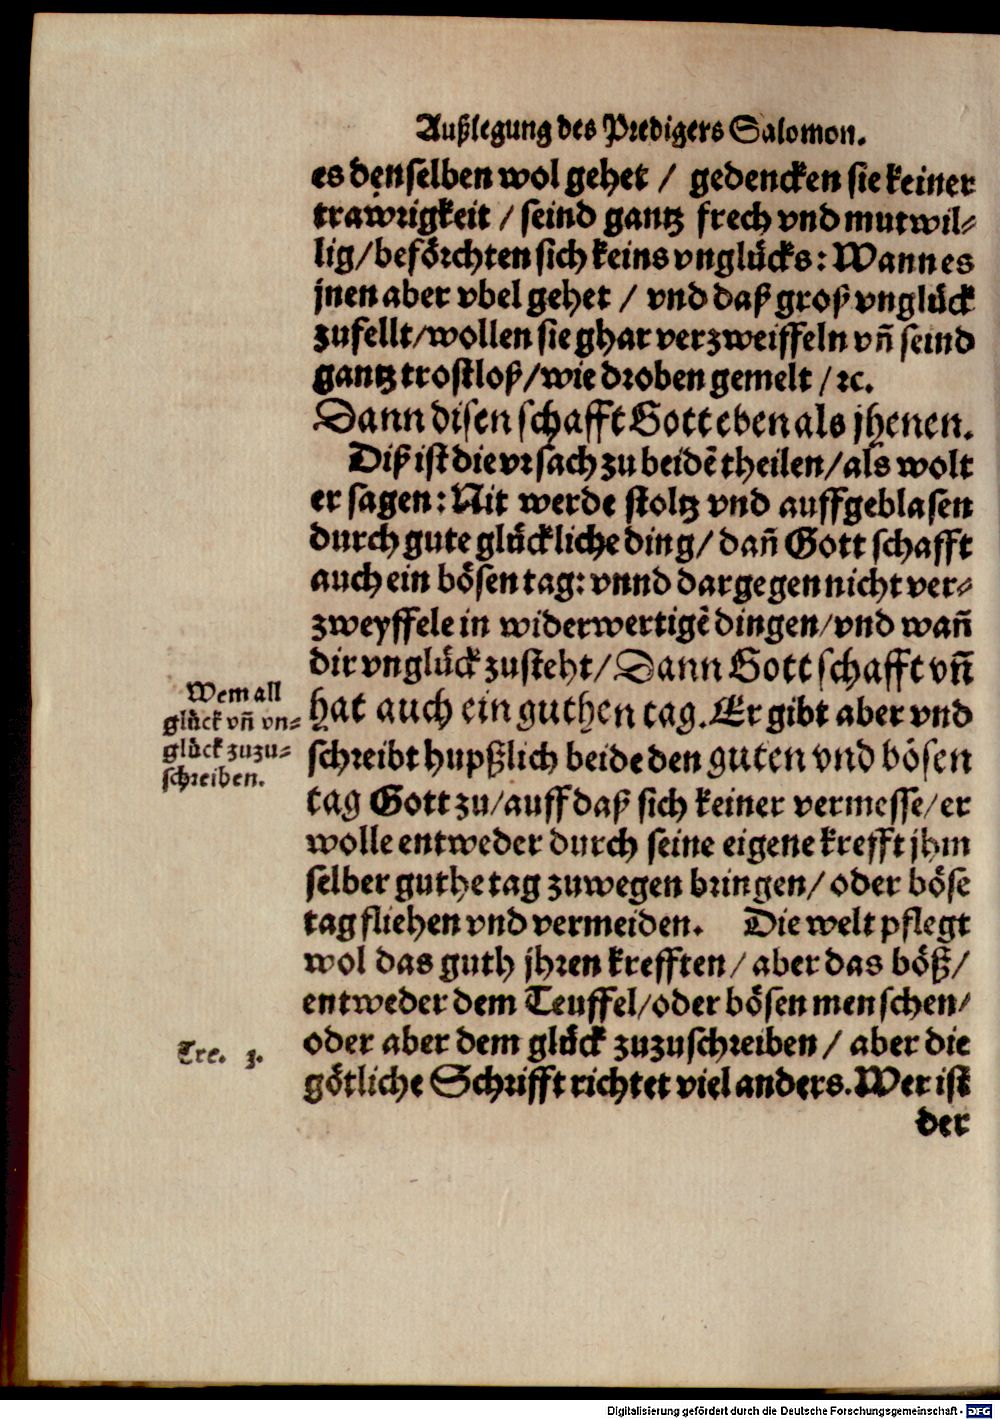 Außlegung des Predigers Salomon.
es denselben wol gehet / gedencken sie keiner
trawrigkeit / seind gantz frech vnd mutwil⸗
lig/befoͤrchten sich keins vngluͤcks: Wann es
jnen aber vbel gehet / vnd daß groß vngluͤck
zufellt/wollen sie ghar verzweiffeln vñ seind
gantz trostloß/wie droben gemelt / ꝛc.
Dann disen schafft Gott eben als jhenen.
Diß ist die vrsach zu beidẽ theilen/als wolt
er sagen: Nit werde stoltz vnd auffgeblasen
durch gute gluͤckliche ding/ dañ Gott schafft
auch ein boͤsen tag: vnnd dargegen nicht ver⸗
zweyffele in widerwertigẽ dingen/vnd wañ
dir vngluͤck zusteht/ Dann Gott schafft vñ
hat auch ein guthen tag. Er gibt aber vnd
schreibt hupßlich beide den guten vnd boͤsen
tag Gott zu/auff daß sich keiner vermesse/er
wolle entweder durch seine eigene krefft jhm
selber guthe tag zuwegen bringen/ oder boͤse
tag fliehen vnd vermeiden. Die welt pflegt
wol das guth jhren krefften/ aber das boͤß/
entweder dem Teuffel/oder boͤsen menschen/
oder aber dem gluͤck zuzuschreiben / aber die
goͤtliche Schrifft richtet viel anders. Wer ist
der
Wem all
gluͤck vñ vn⸗
gluͤck zuzu⸗
schreiben.
Tre. 3.
Digitalisierung gefördert durch die Deutsche Forschungsgemeinschaft - DFG